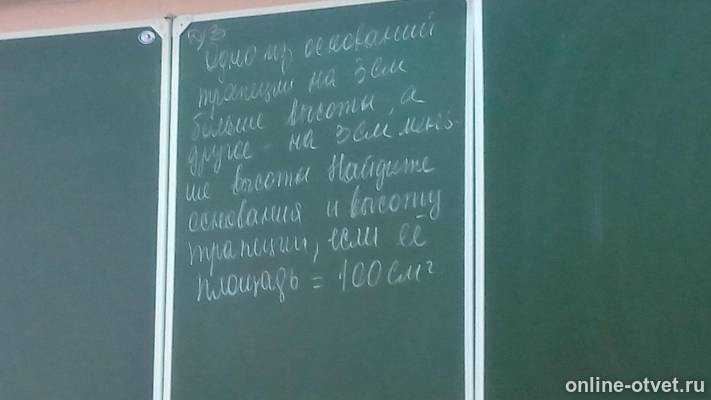 Д/З
Одно из оснований
трапеции на 3 см
больше высоты, а
другое - на 3 см мень-
ше высоты Найдите
основания и высоту
трапеции, если её
площадь = 100 см²
online-otvet.ru